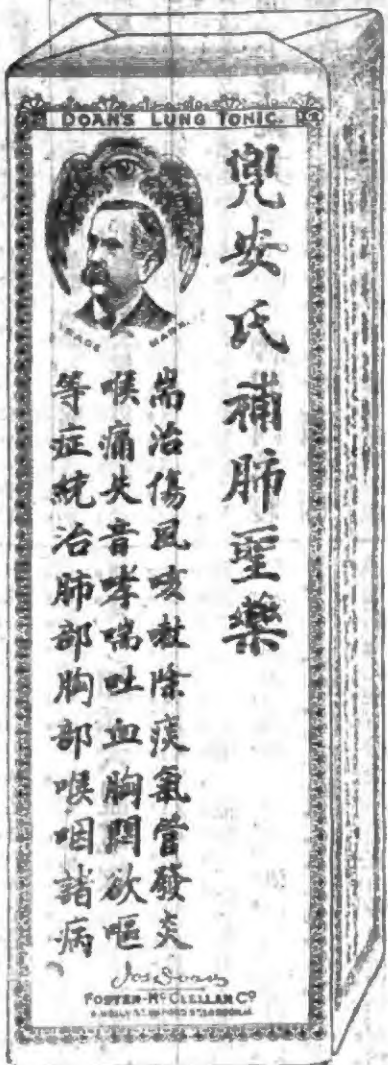 DOAN'S LUNG TONIC.
TRADE MARK
兜安氏補肺聖藥
耑治傷風咳嗽除痰氣管發炎
喉痛失音哮喘吐血胸悶欲嘔
等症統治肺部胸部喉咽諸病
Jos Doan
FOSTER-McCLELLAN Co